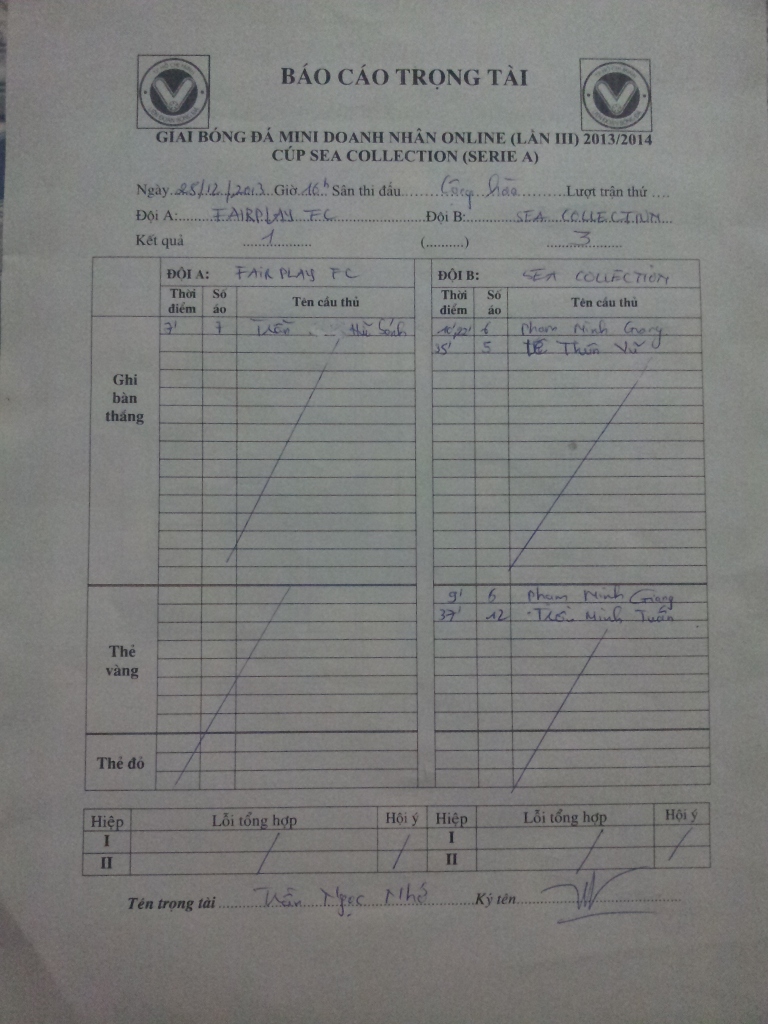 BÁO CÁO TRỌNG TÀI
GIẢI BÓNG ĐÁ MINI DOANH NHÂN ONLINE (LẦN III) 2013/2014
CÚP SEA COLLECTION (SERIE A)
Ngày 25/12/2013 Giờ 16h Sân thi đấu Lượt trận thứ ....
Đội A: FAIRPLAY FC Đội B: SEA COLLECTION
Kết quả 1 (..........) 3
ĐỘI A: FAIR PLAY FC ĐỘI B: SEA COLLECTION
Thời điểm Số áo Tên cầu thủ Thời điểm Số áo Tên cầu thủ
Ghi bàn thắng
7' 7 Trần 6 Phạm Minh Giang
35' 5 Lê Thiên Vũ
Thẻ vàng
9' 6 Phạm Minh Giang
37' 12 Trần Minh Tuấn
Thẻ đỏ
Hiệp Lỗi tổng hợp Hội ý Hiệp Lỗi tổng hợp Hội ý
I I
II II
Tên trọng tài Trần Ngọc Nhớ Ký tên